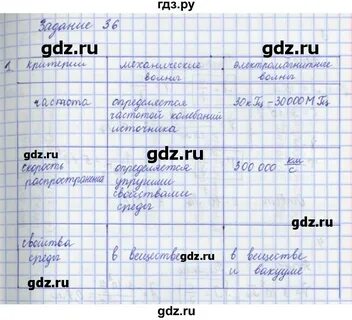 гдз.ру
Задание 36
gdz.ru gdz.ru
1. критерии механические волны электромагнитные волны
gdz.ru gdz.ru
частота определяется частотой колебаний источника 30 кГц – 30000 МГц
gdz.ru gdz.ru
скорость распространения определяется упругими свойствами среды 300 000 км/с
gdz.ru gdz.ru
свойства среды в веществе в веществе и вакууме
gdz.ru gdz.ru